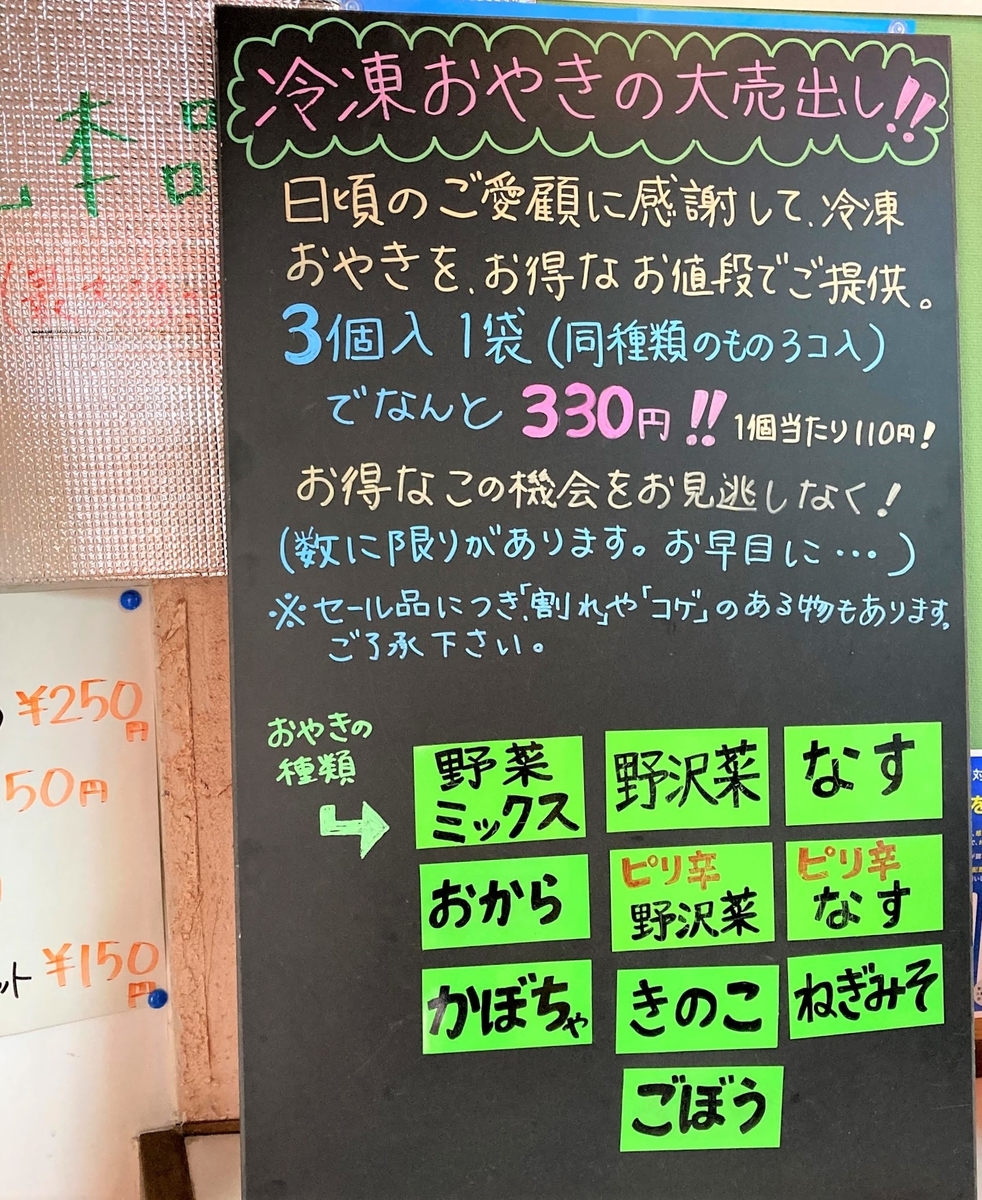 冷凍おやきの大売出し!!
日頃のご愛顧に感謝して、冷凍
おやきを、お得なお値段でご提供。
3個入1袋(同種類のもの3コ入)
でなんと330円!!1個当たり110円!
お得なこの機会をお見逃しなく!
(数に限りがあります。お早目に…)
※セール品につき「割れ」や「コゲ」のある物もあります。
ご了承下さい。
おやきの
種類
野菜
ミックス
野沢菜
なす
おから
ピリ辛
野沢菜
ピリ辛
なす
かぼちゃ
きのこ
ねぎみそ
ごぼう
本品
¥250円
50円
ット ¥150円